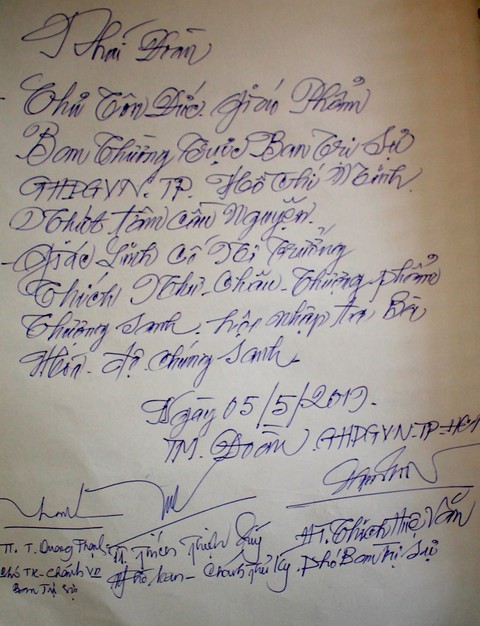 Phái Đoàn
Chư Tôn Đức. Giáo Phẩm
Ban Thường Trực Ban Trị Sự
GHPGVN. TP. Hồ Chí Minh.
Nhất tâm cầu Nguyện.
- Giác Linh Cố Ni Trưởng
Thích Như-Châu-Thượng phẩm
Thượng Sanh. hội nhập Ta Bà
độ chúng Sanh.
Ngày 05/5/2019.
TM. Đoàn GHPGVN-TP-HCM
HT. Thích Thiện Quý
Phó ban - Chánh Thư Ký
HT. Thích Huệ Văn
Phó Ban Trị Sự
TT. T. Quang Thạnh
Phó TK - Chánh VP
Ban Trị Sự